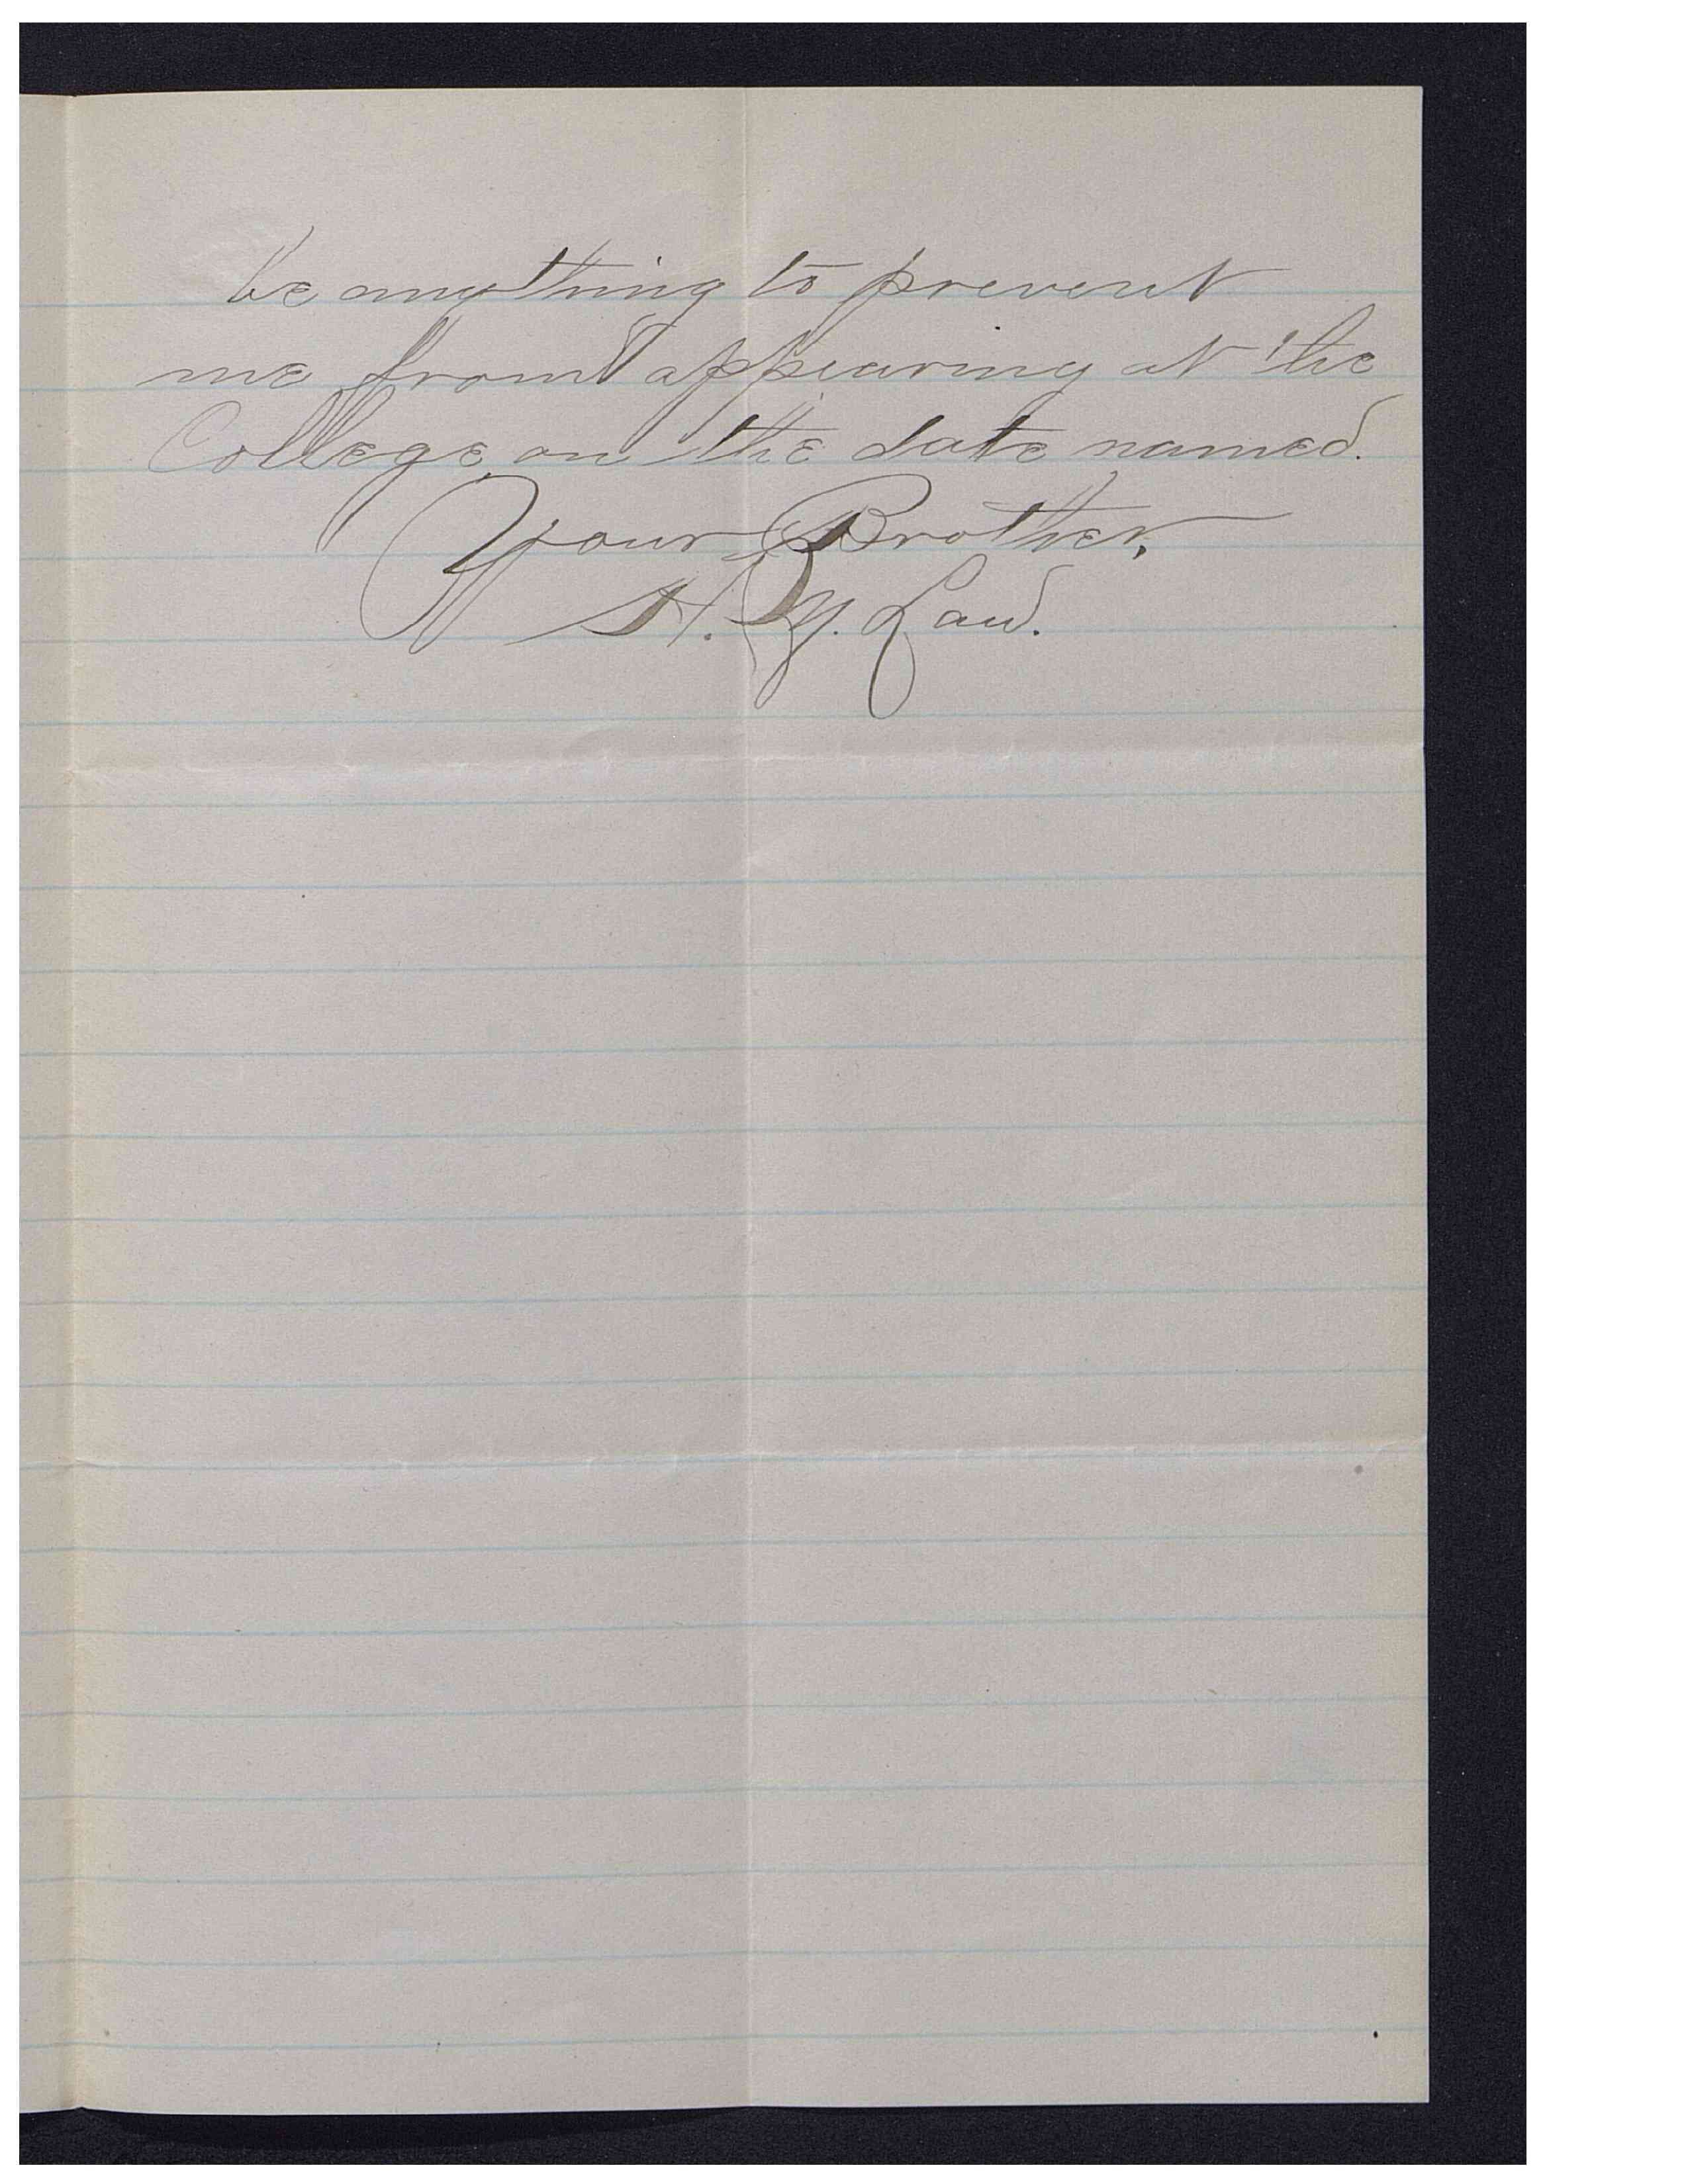 be anything to prevent
me from appearing at the
College on the date named.
Your Brother,
H. Y. Law.